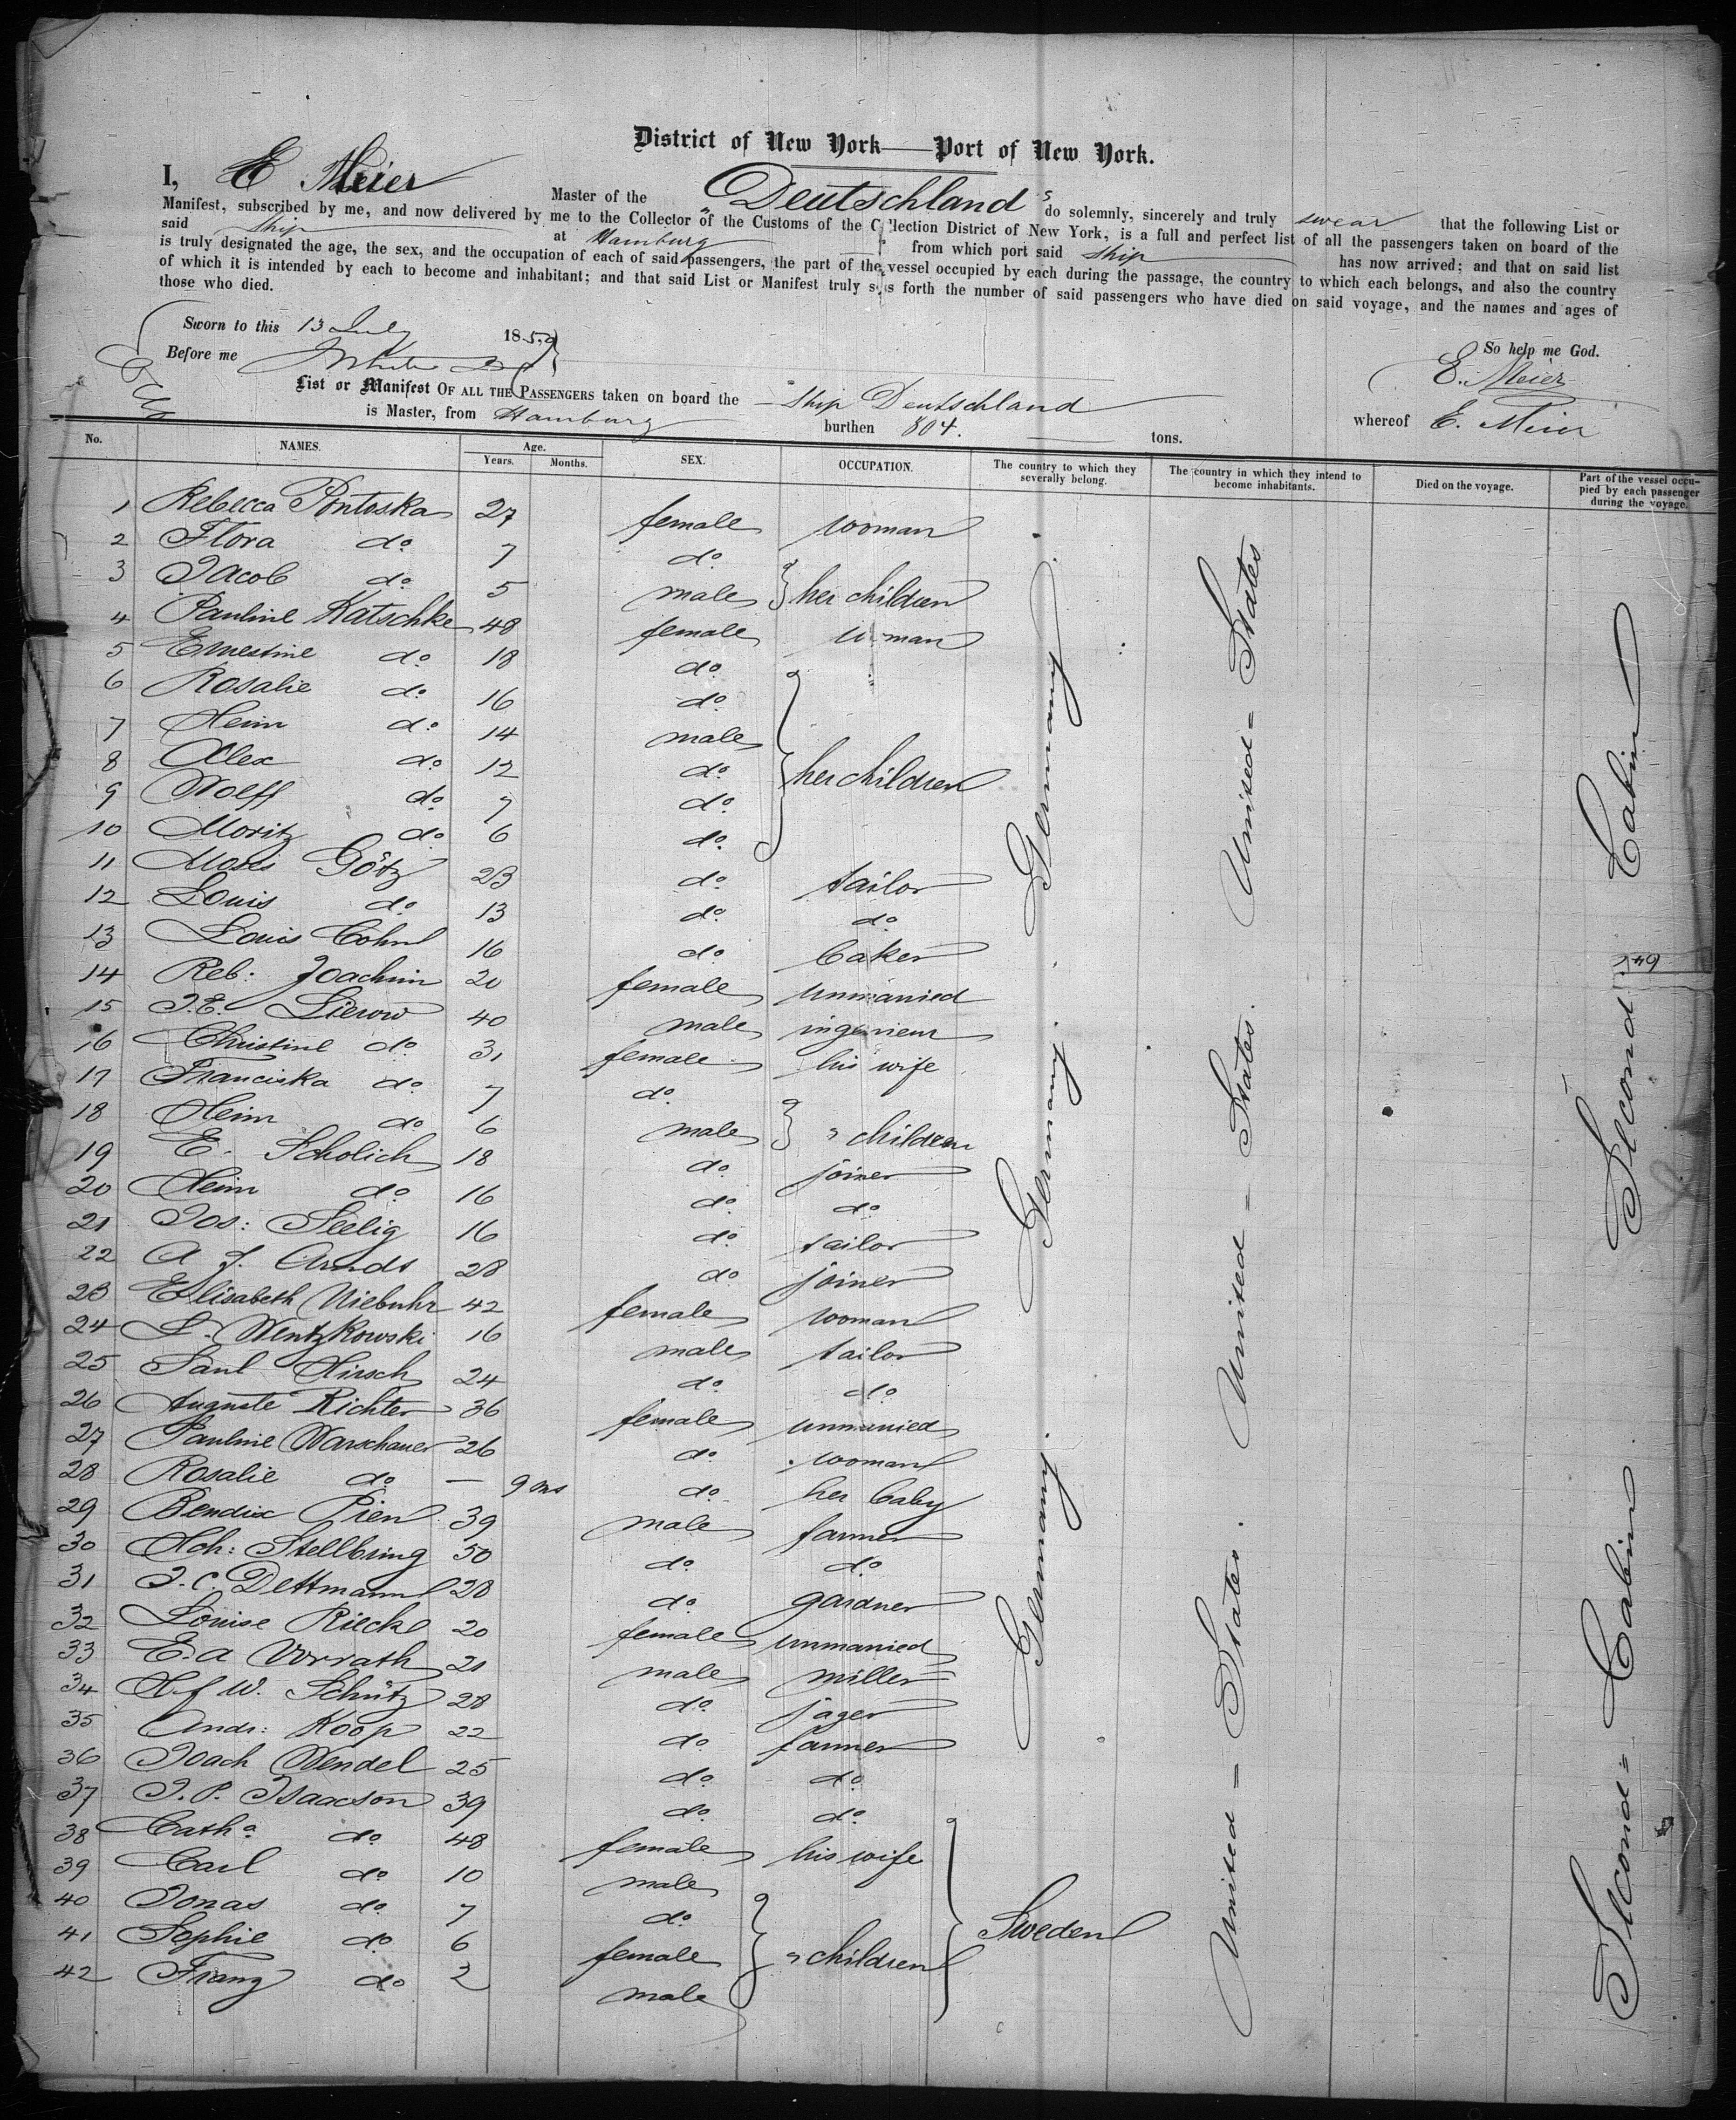 District of New York—Port of New York.
I, E Meier Master of the Deutschland do solemnly, sincerely and truly swear that the following List or
Manifest, subscribed by me, and now delivered by me to the Collector of the Customs of the Collection District of New York, is a full and perfect list of all the passengers taken on board of the
said Ship at Hamburg from which port said Ship has now arrived; and that on said list
is truly designated the age, the sex, and the occupation of each of said passengers, the part of the vessel occupied by each during the passage, the country to which each belongs, and also the country
of which it is intended by each to become and inhabitant; and that said List or Manifest truly sets forth the number of said passengers who have died on said voyage, and the names and ages of
those who died.
Sworn to this 13 July 1859
So help me God.
Before me
E. Meier
List or Manifest OF ALL THE PASSENGERS taken on board the Ship Deutschland whereof E. Meier
is Master, from Hamburg burthen 804. tons.
No. NAMES. Age. Years. Months. SEX. OCCUPATION. The country to which they severally belong. The country in which they intend to become inhabitants. Died on the voyage. Part of the vessel occupied by each passenger during the voyage.
1 Rebecca Pontoska 27 female woman
2 Flora do. 7 do.
3 Jacob do. 5 male } her children
4 Pauline Katschke 48 female woman
5 Ernestine do. 18 do.
6 Rosalie do. 16 do.
7 Heinr do. 14 male
8 Alex do. 12 do. } her children
9 Wolff do. 7 do.
10 Moritz do. 6 do.
11 Moses Götz 23 do. tailor
12 Louis do. 13 do. do.
13 Louis Cohn 16 do. baker
14 Reb: Joachim 20 female unmarried
15 J.E. Lierow 40 male ingenieur
16 Christine do. 31 female his wife
17 Franciska do. 7 do.
18 Heinr do. 6 male } " children
19 E. Scholich 18 do. joiner
20 Heinr do. 16 do. do.
21 Jos: Seelig 16 do. tailor
22 A. J. Arnds 28 do. joiner
23 Elisabeth Niebuhr 42 female woman
24 L. Wentzkowski 16 male tailor
25 Saul Hirsch 24 do. do.
26 Auguste Richter 36 female unmarried
27 Pauline Warschauer 26 do. woman
28 Rosalie do. — 9 ms do. her baby
29 Bendix Pien 39 male farmer
30 Hch: Stellbring 50 do. do.
31 J.C. Dettmann 28 do. gardner
32 Louise Rieck 20 female unmarried
33 E.A Vorrath 21 male miller
34 H.f W. Schütz 28 do. jäger
35 Andr: Koop 22 do. farmer
36 Joach Wendel 25 do. do.
37 J.P. Isaacson 39 do. do.
38 Cath.a do. 48 female his wife
39 Carl do. 10 male
40 Jonas do. 7 do.
41 Sophie do. 6 female } " children
42 Franz do. 2 male
Germany. Germany. Germany.
Sweden
United = States. United = States. United = States
Second = Cabin. Second Cabin
645